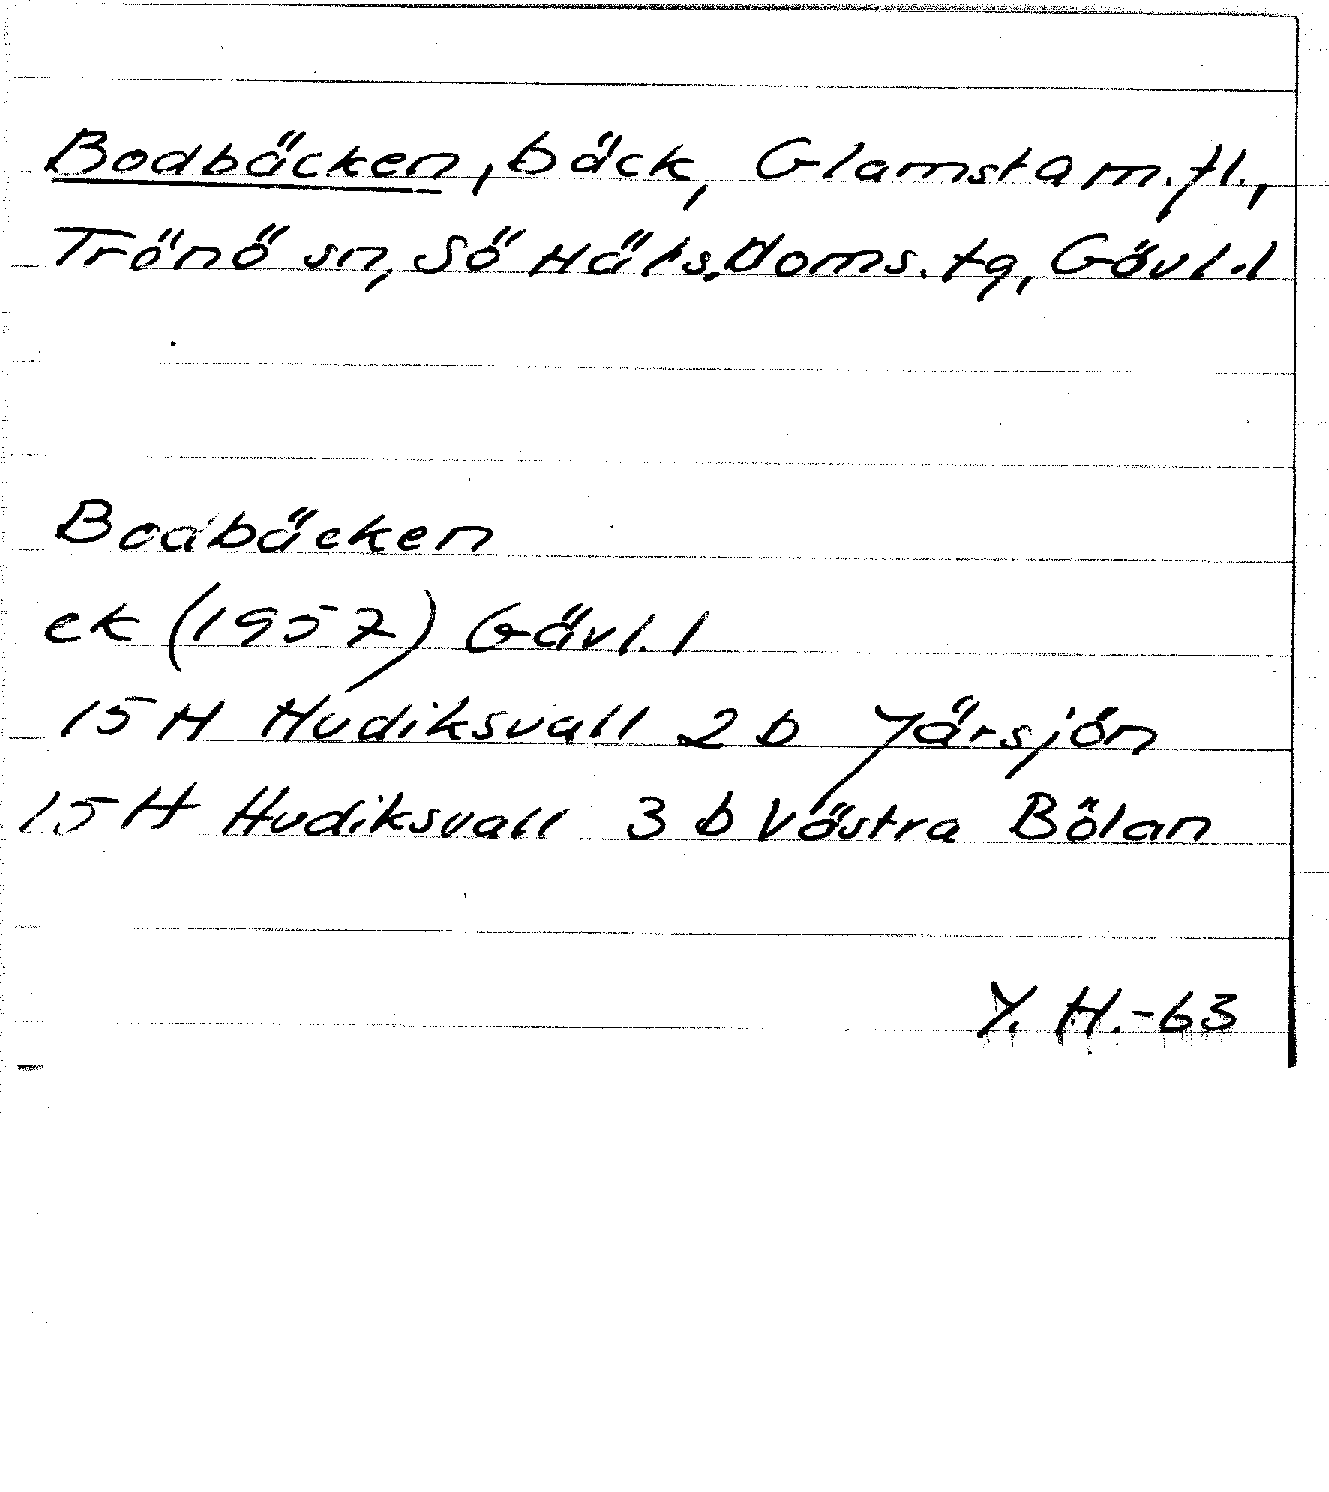 Bodbäcken, bäck, Glamsta m.fl.,
Trönö sn, Sö Häls. doms. tg, Gävl.l
Bodbäcken
ek (1957) Gävl.l
15 H Hudiksvall 2 b Yärsjön
15 H Hudiksvall 3 b Västra Bölan
Y. H.-63